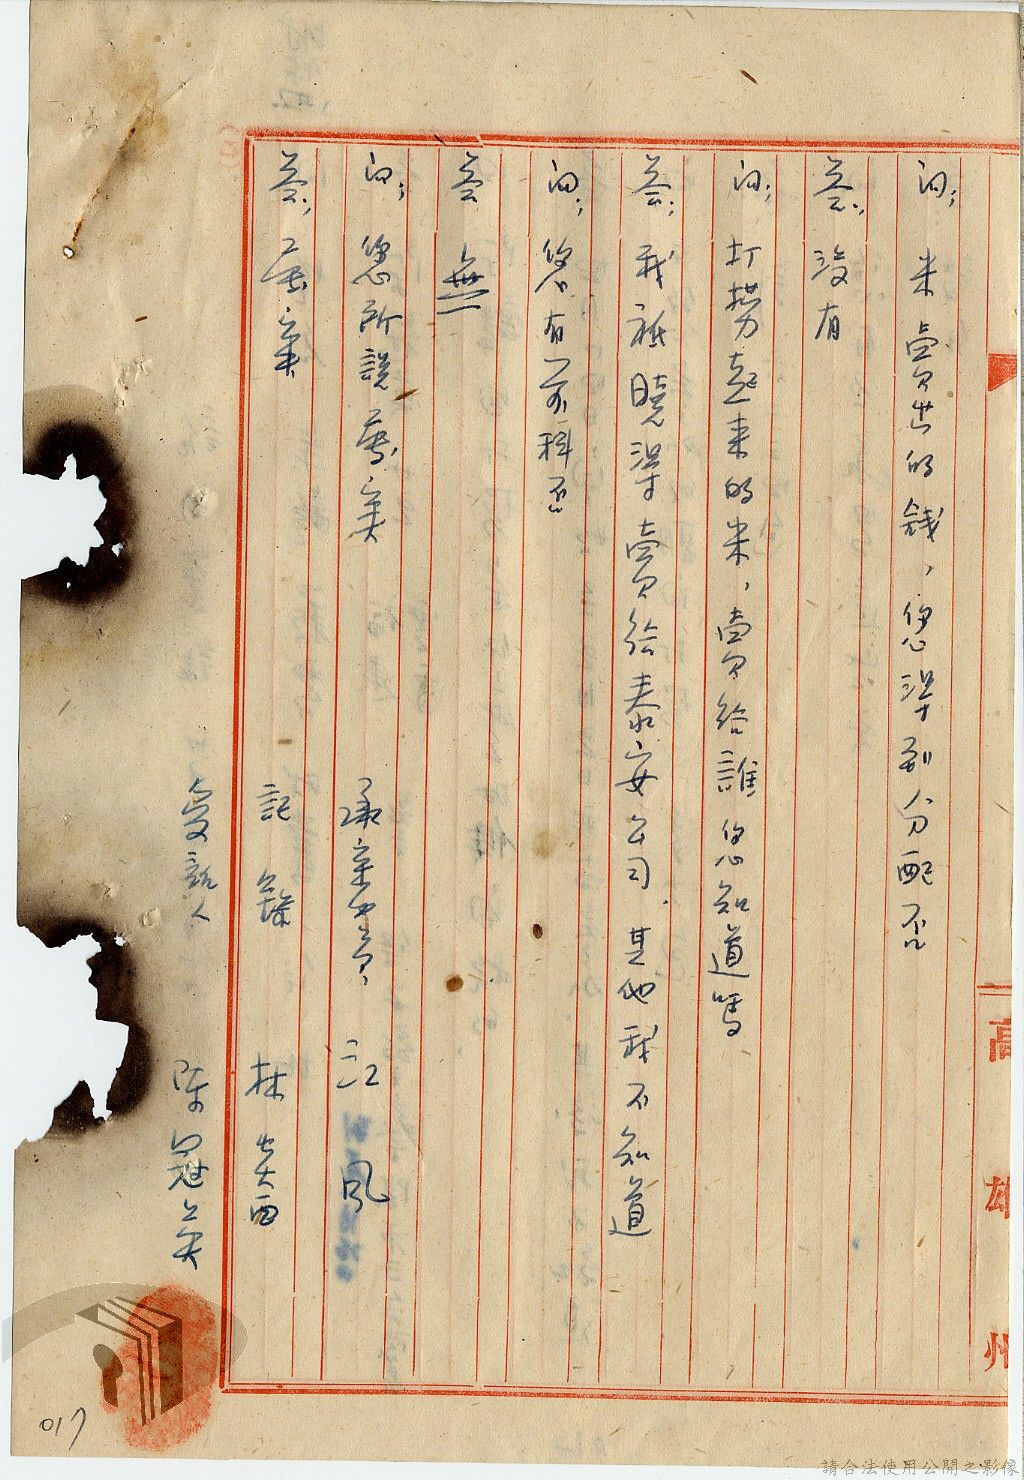 問; 米賣出的錢，您得到分配否
答; 沒有
問; 打撈起來的米，賣給誰您知道嗎
答; 我祗曉得賣給泰安公司．其他我不知道
問; 您有前科否
答 無
問; 您所說屬實
答; 屬實
江風
記錄 林炎西
受訊人 陳冠英
高雄州
017
請合法使用公開之影像